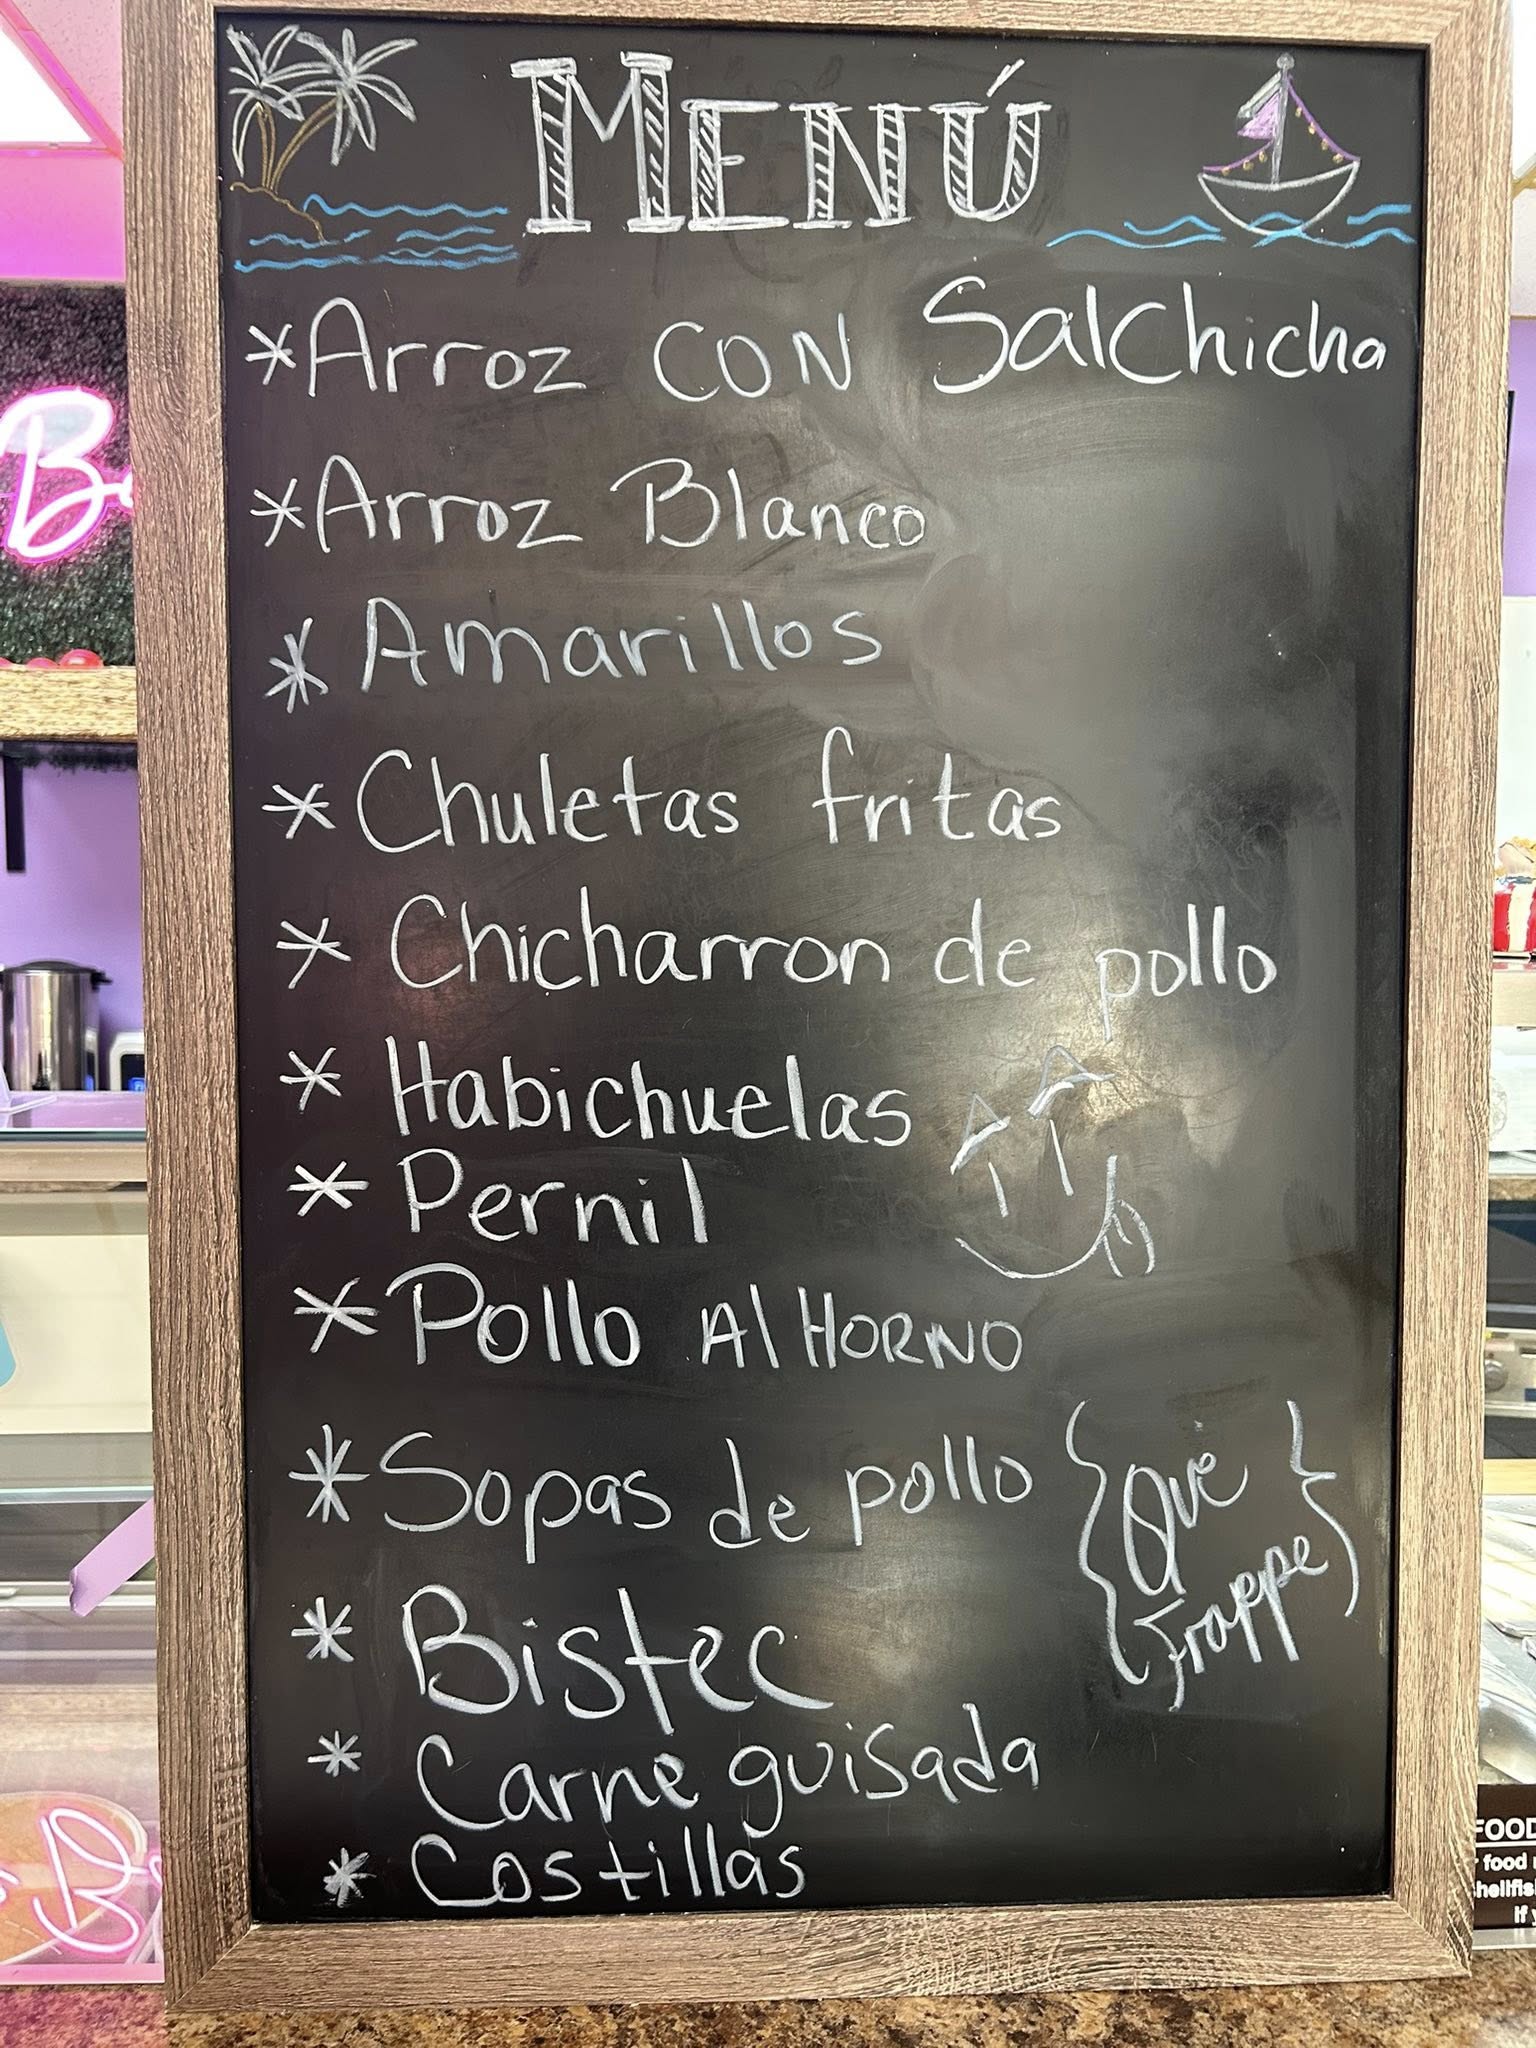 MENÚ
*Arroz CON SalChicha
*Arroz Blanco
* Amarillos
* Chuletas fritas
* Chicharron de pollo
* Habichuelas
* Pernil
* Pollo Al HORNO
* Sopas de pollo
{Que
Frappe}
* Bistec
* Carne guisada
* Costillas
B
FOOD
food
hellfis
If